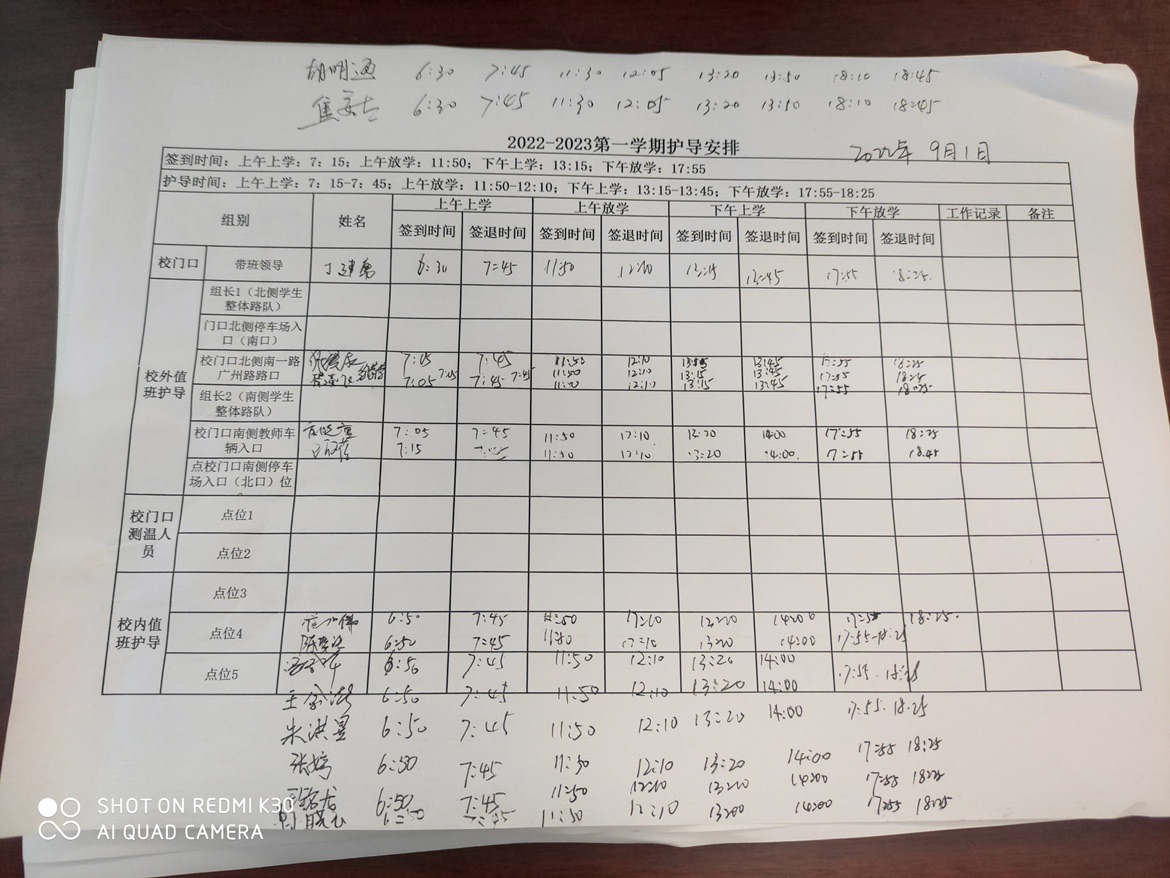 胡明通 6:30 7:45 11:30 12:05 13:20 13:50 18:10 18:45
焦 6:30 7:45 11:30 12:05 13:20 13:50 18:10 18:45
2022-2023第一学期护导安排
2022年 9月1日
签到时间：上午上学：7：15；上午放学：11:50；下午上学：13:15；下午放学：17:55
护导时间：上午上学：7：15-7：45；上午放学：11:50-12:10；下午上学：13:15-13:45；下午放学：17:55-18:25
组别 姓名 上午上学 上午放学 下午上学 下午放学 工作记录 备注
签到时间 签退时间 签到时间 签退时间 签到时间 签退时间 签到时间 签退时间
校门口 带班领导 丁建勇 6:30 7:45 11:50 12:10 13:15 13:45 17:55 18:25
校外值班护导
组长1（北侧学生
整体路队）
门口北侧停车场入
口（南口）
校门口北侧南一路 7:15 7:45 11:50 12:10 13:15 13:45 17:55 18:25
广州路路口 7:05 7:15 7:45 7:45 11:50 12:10 13:15 13:45 17:55
12:10 13:15 13:45 17:55 18:25
组长2（南侧学生
整体路队）
校门口南侧教师车 7:05 7:45 11:50 12:10 13:20 14:00 17:55 18:25
辆入口 7:15 11:50 12:10 13:20 14:00 17:55 18:45
点校门口南侧停车
场入口（北口）位
校门口测温人员
点位1
点位2
校内值班护导
点位3
点位4 6:50 7:45 11:50 12:10 13:20 14:00 17:55 18:25
6:50 7:45 11:50 12:10 13:20 14:00 17:55-18:25
点位5 6:50 7:45 11:50 12:10 13:20 14:00 17:55 18:25
王 6:50 7:45 11:50 12:10 13:20 14:00 17:55 18:25
朱洪昱 6:50 7:45 11:50 12:10 13:20
张婷 6:50 7:45 11:50 12:10 13:20 14:00 17:55 18:25
6:50 7:45 11:50 12:10 13:20 14:00 17:55 18:25
11:50 12:10 14:00 17:55 18:25
SHOT ON REDMI K30
AI QUAD CAMERA